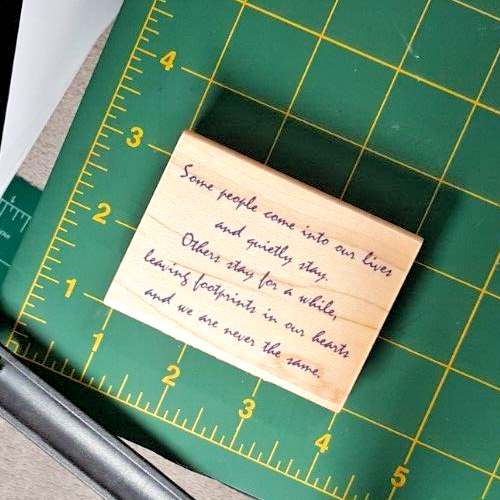 Some people come into our lives
and quietly stay.
Others stay for a while,
leaving footprints in our hearts
and we are never the same.
4
3
2
1
1
2
3
4
5